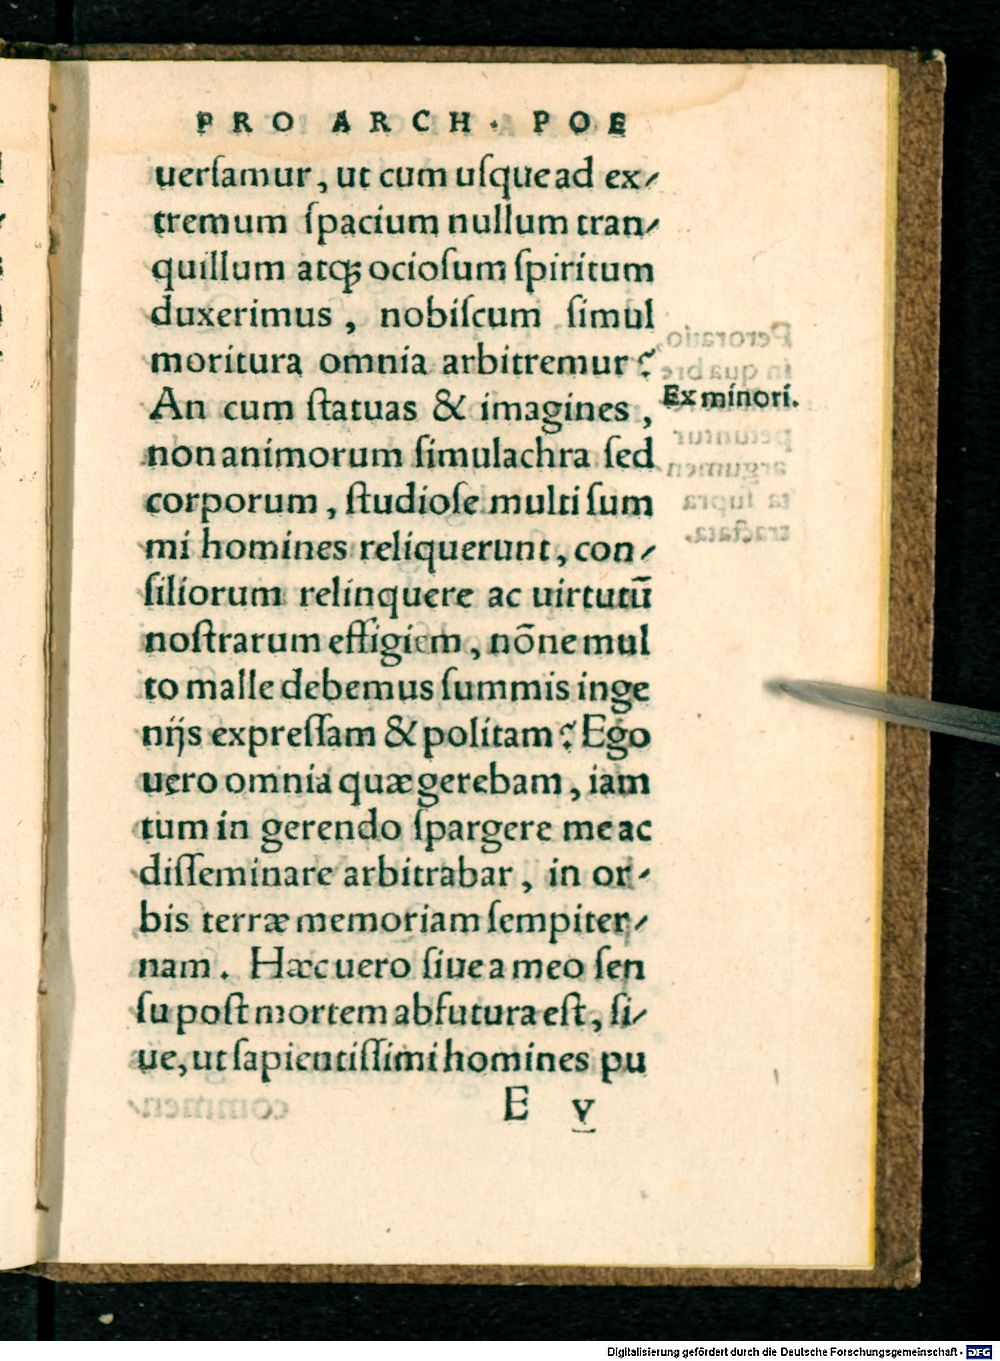 PRO ARCH. POE
uerſamur, ut cum uſque ad ex-
tremum ſpacium nullum tran-
quillum atq; ocioſum ſpiritum
duxerimus, nobiſcum ſimul
moritura omnia arbitremur?
An cum ſtatuas & imagines,
Ex minori.
non animorum ſimulachra ſed
corporum, ſtudioſe multi ſum
mi homines reliquerunt, con-
ſiliorum relinquere ac uirtutū
noſtrarum effigiem, nōne mul
to malle debemus ſummis inge
nijs expreſſam & politam? Ego
uero omnia quæ gerebam, iam
tum in gerendo ſpargere me ac
diſſeminare arbitrabar, in or-
bis terræ memoriam ſempiter-
nam. Hæc uero ſiue a meo ſen
ſu poſt mortem abfutura eſt, ſi-
ue, ut ſapientiſſimi homines pu
E v
Digitalisierung gefördert durch die Deutsche Forschungsgemeinschaft - DFG